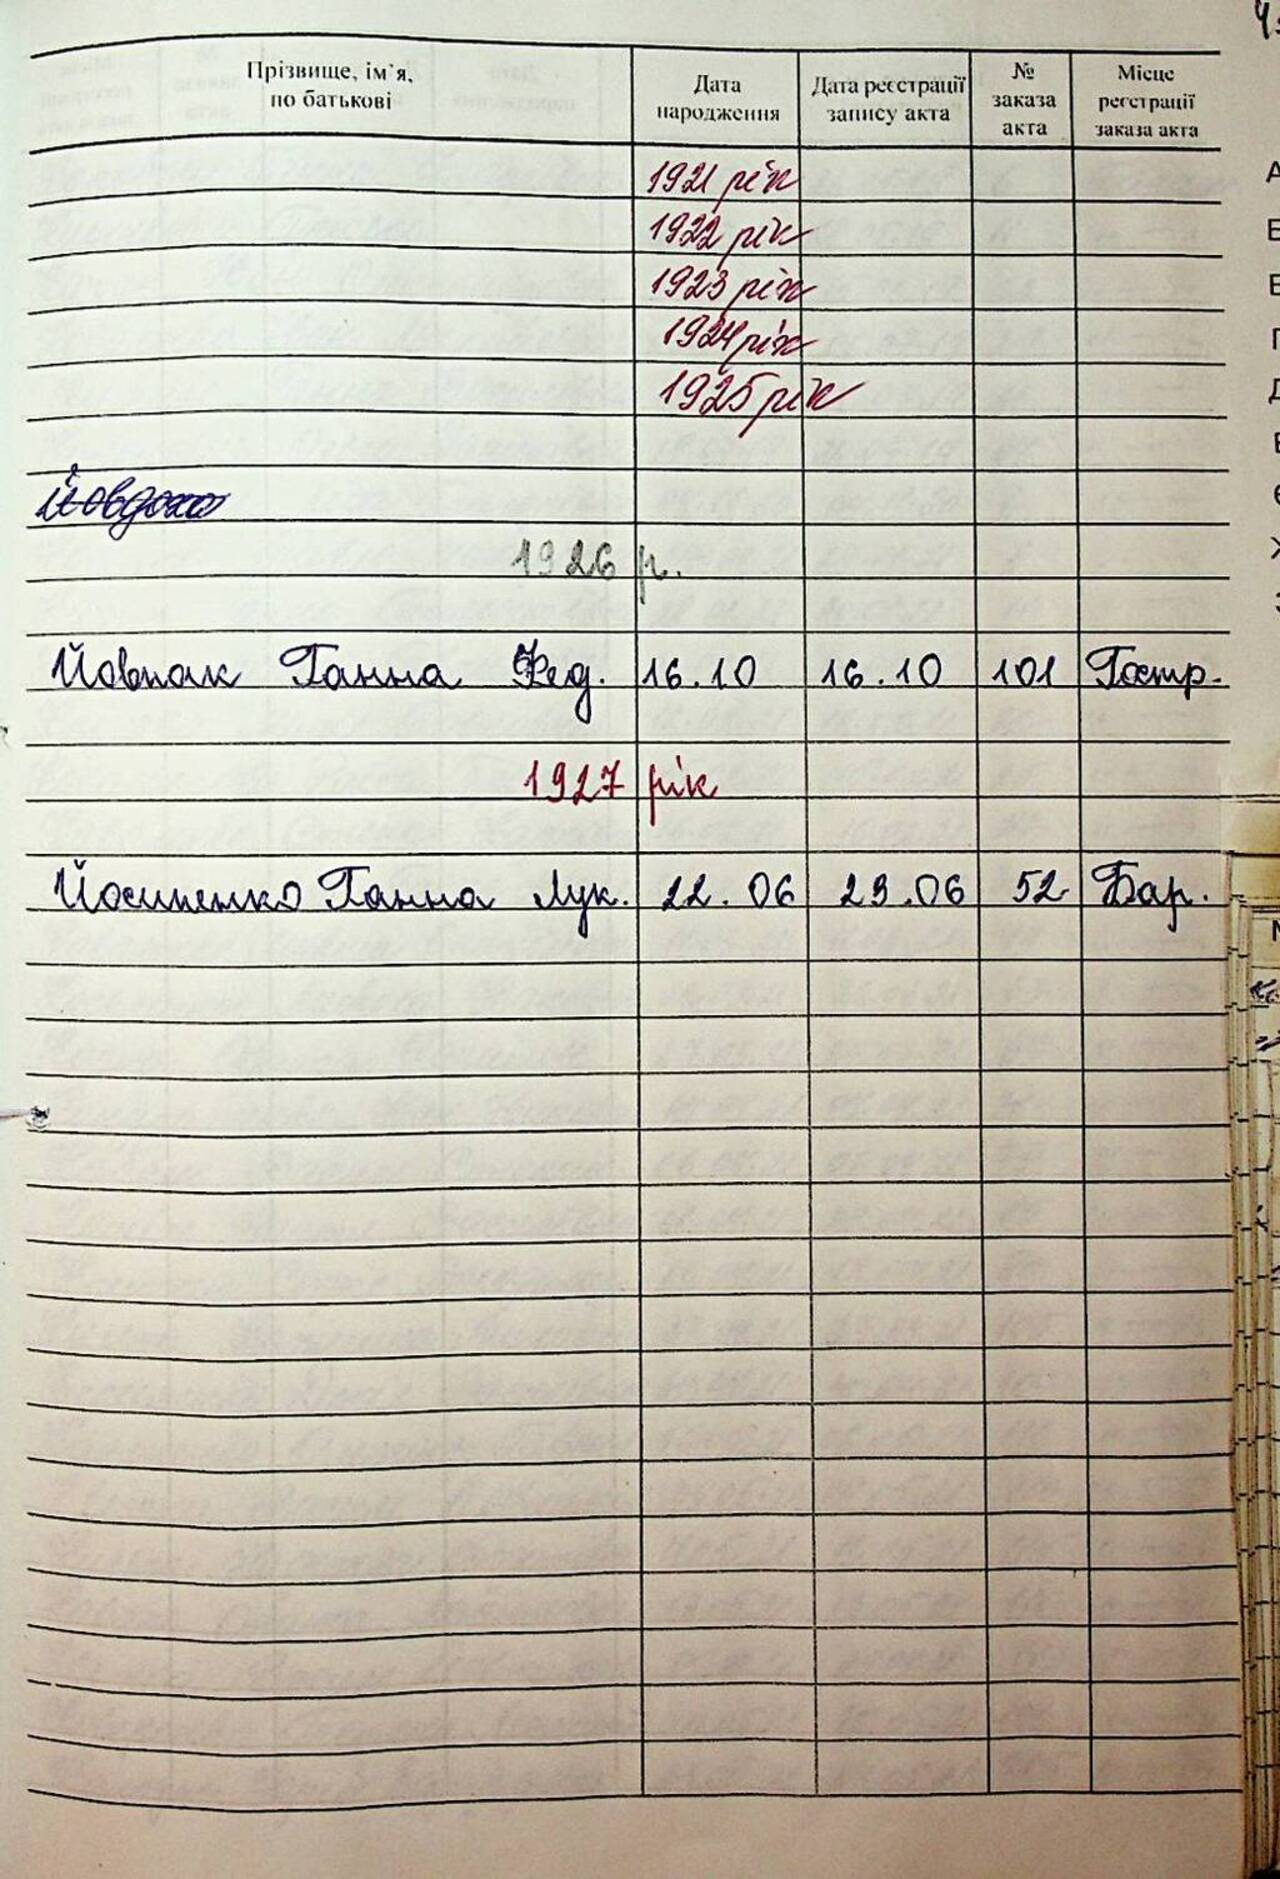 Прізвище, ім'я,
по батькові
Дата
народження
Дата реєстрації
запису акта
№
заказа
акта
Місце
реєстрації
заказа акта
1921 рік
1922 рік
1923 рік
1924 рік
1925 рік
Йовдохо
1926 р.
Йовпак Ганна Фед. 16.10 16.10 101 Гостр.
1927 рік
Йосипенко Ганна Лук. 22.06 23.06 52 Бар.